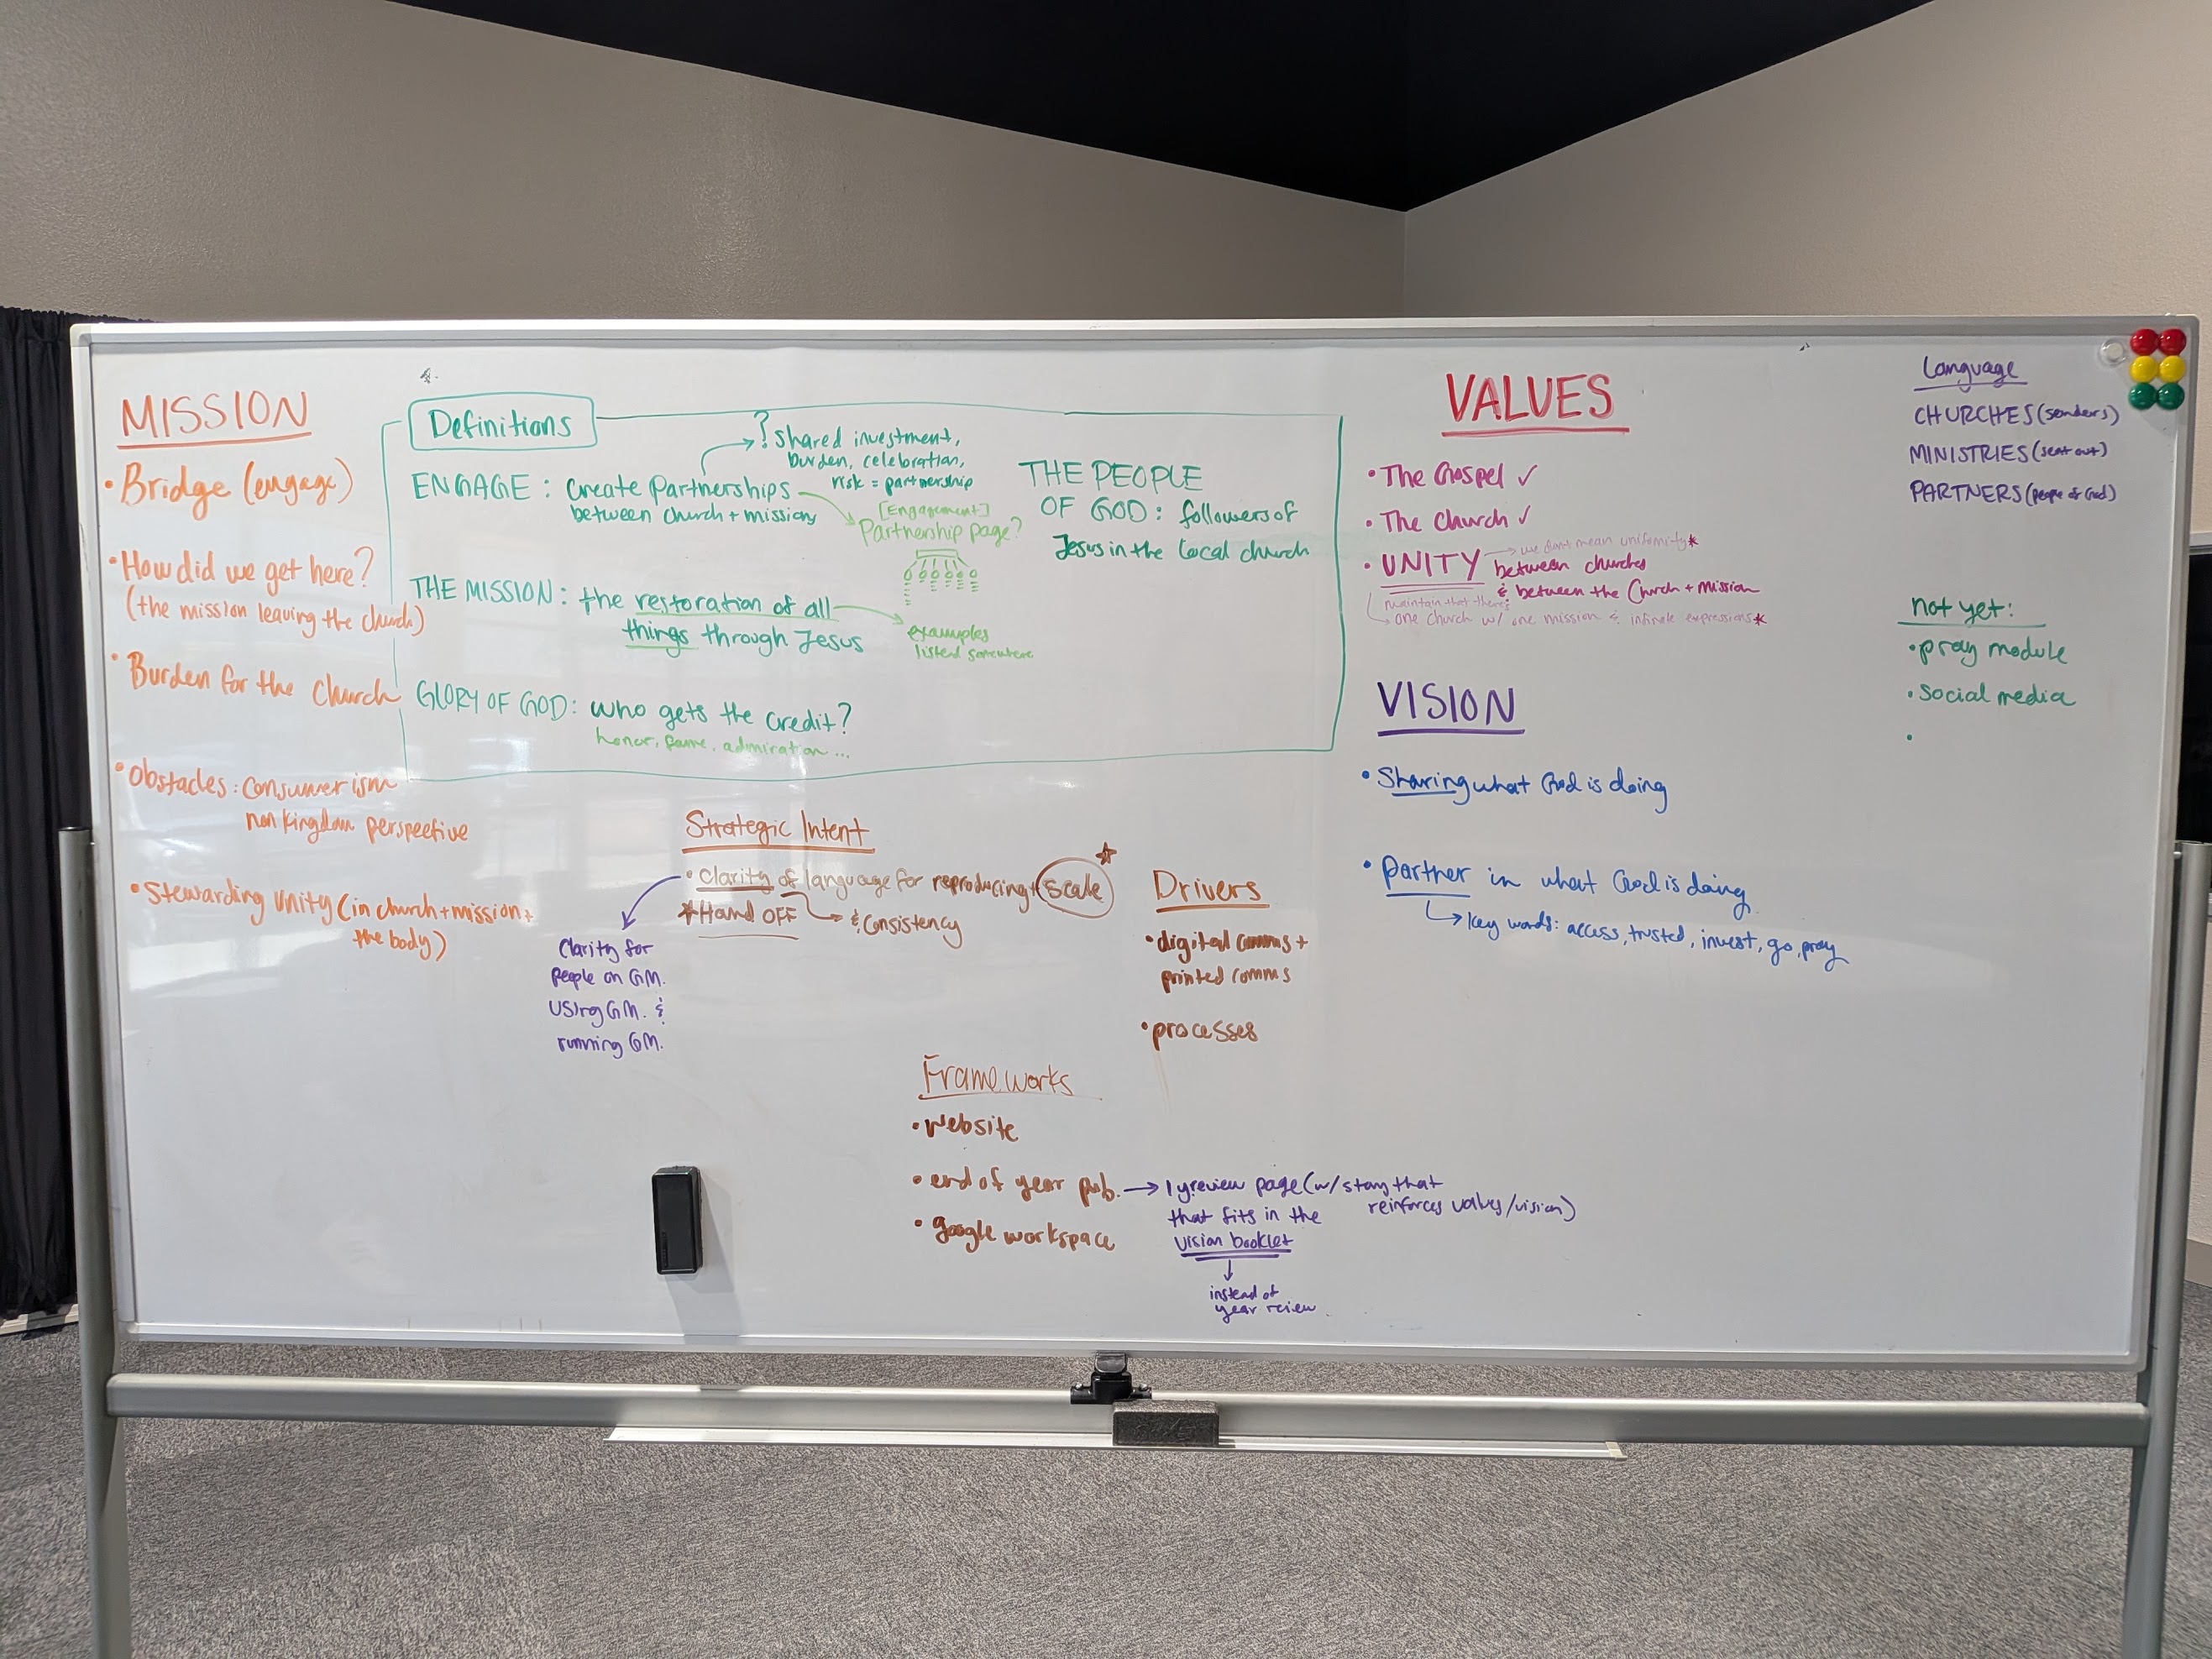 MISSION
• Bridge (engage)
• How did we get here?
(the mission leaving the church)
• Burden for the Church
• Obstacles: Consumerism
non kingdom perspective
• Stewarding Unity (in church + mission +
the body)
Definitions
ENGAGE: Create Partnerships
between church + missions
? shared investment,
burden, celebration,
risk = partnership
[Engagement]
Partnership page?
THE PEOPLE
OF GOD: followers of
Jesus in the local church
THE MISSION: the restoration of all
things through Jesus
examples
listed somewhere
GLORY OF GOD: who gets the credit?
honor, fame, admiration ...
Strategic Intent
• clarity of language for reproducing + scale
* Hand OFF
& Consistency
Clarity for
people on GM.
using GM. &
running GM.
Drivers
• digital comms +
printed comms
• processes
Frameworks
• website
• end of year pub. → 1 yreview page (w/ story that
reinforces values/vision)
that fits in the
vision booklet
instead of
year reiew.
• google workspace
VALUES
• The Gospel ✓
• The Church ✓
• UNITY → we don't mean uniformity *
between churches
& between the Church + mission
maintain that there's
one church w/ one mission & infinite expressions *
VISION
• Sharing what God is doing
• partner in what God is doing
→ key words: access, trusted, invest, go, pray
Language
CHURCHES (senders)
MINISTRIES (sent out)
PARTNERS (people of God)
not yet:
• pray module
• social media
•